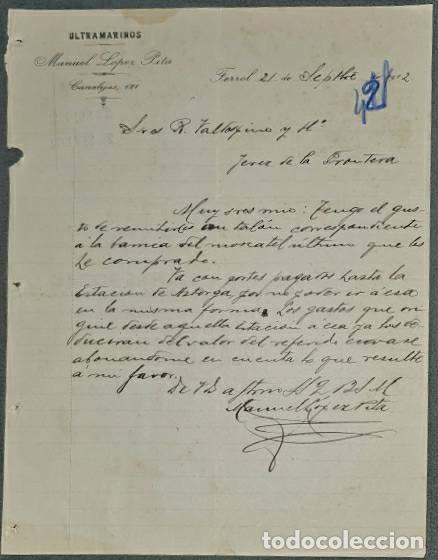 ULTRAMARINOS
Manuel Lopez Pita
Canalejas, 121
Ferrol 21 de Septbre 2
Sres R. Valdespino y Hº
Jerez de la Frontera
Muy sres mio: Tengo el gus-
to de remitirles un talón correspondiente
á la barrica del moscatel ultimo que les
he comprado.
Va con portes pagados hasta la
Estacion de Astorga, por no poder ir á esa
en la misma forma. Los gastos que ori
gine desde aquella estacion á esa ya los de
duciran del valor del referido
abonandome en cuenta lo que resulte
á mi favor.
De Vds afmo SS Q B S M
Manuel López Pita
todocoleccion.net